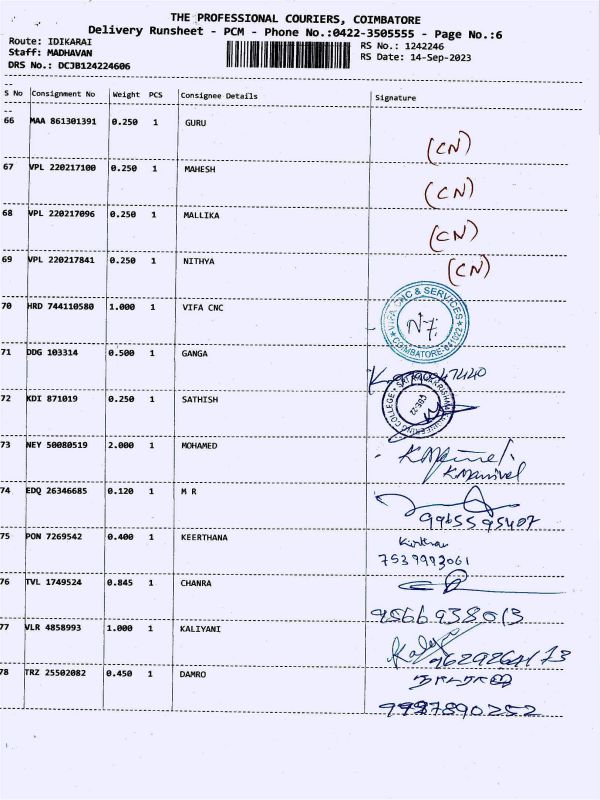 THE PROFESSIONAL COURIERS, COIMBATORE
Delivery Runsheet - PCM - Phone No.:0422-3505555 - Page No.:6
Route: IDIKARAI
RS No.: 1242246
Staff: MADHAVAN
RS Date: 14-Sep-2023
DRS No.: DCJB124224606
S No Consignment No Weight PCS Consignee Details Signature
66 MAA 861301391 0.250 1 GURU
(CN)
67 VPL 220217100 0.250 1 MAHESH
(CN)
68 VPL 220217096 0.250 1 MALLIKA
(CN)
69 VPL 220217841 0.250 1 NITHYA
(CN)
70 HRD 744110580 1.000 1 VIFA CNC
VIFA CNC & SERVICES
COIMBATORE-641022
71 DDG 103314 0.500 1 GANGA
72 KDI 871019 0.250 1 SATHISH
73 NEY 50080519 2.000 1 MOHAMED
K Manivel
74 EDQ 26346685 0.120 1 M R
9965595407
75 PON 7269542 0.400 1 KEERTHANA
7539993061
76 TVL 1749524 0.845 1 CHANRA
9566938013
77 VLR 4858993 1.000 1 KALIYANI
78 TRZ 25502082 0.450 1 DAMRO